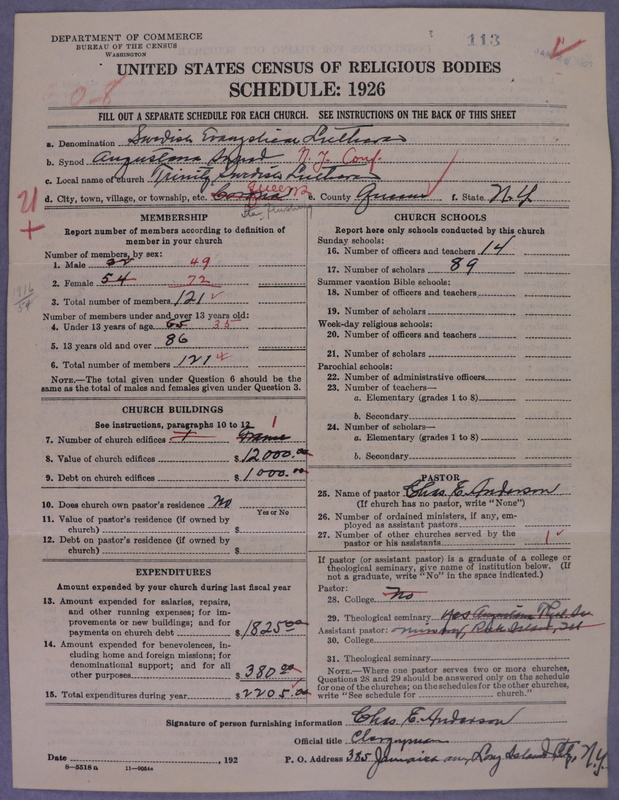 DEPARTMENT OF COMMERCE
BUREAU OF THE CENSUS
WASHINGTON
113
UNITED STATES CENSUS OF RELIGIOUS BODIES
SCHEDULE: 1926
0-8
FILL OUT A SEPARATE SCHEDULE FOR EACH CHURCH. SEE INSTRUCTIONS ON THE BACK OF THIS SHEET
a. Denomination Swedish Evangelical Lutheran
b. Synod Augustana Synod N.Y. Conf.
c. Local name of church Trinity Swedish Lutheran
d. City, town, village, or township, etc. Corona Queens e. County Queens f. State N.Y.
MEMBERSHIP
Report number of members according to definition of
member in your church
Number of members, by sex:
1. Male 49
2. Female 54 72
3. Total number of members 121
Number of members under and over 13 years old:
4. Under 13 years of age 65 35
5. 13 years old and over 86
6. Total number of members 121
NOTE.—The total given under Question 6 should be the
same as the total of males and females given under Question 3.
CHURCH BUILDINGS
See instructions, paragraphs 10 to 12
7. Number of church edifices 1 1
8. Value of church edifices $12000.00
9. Debt on church edifices $1000.00
10. Does church own pastor's residence No
Yes or No
11. Value of pastor's residence (if owned by
church) $
12. Debt on pastor's residence (if owned by
church) $
EXPENDITURES
Amount expended by your church during last fiscal year
13. Amount expended for salaries, repairs,
and other running expenses; for im-
provements or new buildings; and for
payments on church debt $1825.00
14. Amount expended for benevolences, in-
cluding home and foreign missions; for
denominational support; and for all
other purposes $380.00
15. Total expenditures during year $2205.00
CHURCH SCHOOLS
Report here only schools conducted by this church
Sunday schools:
16. Number of officers and teachers 14
17. Number of scholars 89
Summer vacation Bible schools:
18. Number of officers and teachers
19. Number of scholars
Week-day religious schools:
20. Number of officers and teachers
21. Number of scholars
Parochial schools:
22. Number of administrative officers
23. Number of teachers—
a. Elementary (grades 1 to 8)
b. Secondary
24. Number of scholars—
a. Elementary (grades 1 to 8)
b. Secondary
PASTOR
25. Name of pastor Chas. E. Anderson
(If church has no pastor, write "None")
26. Number of ordained ministers, if any, em-
ployed as assistant pastors
27. Number of other churches served by the
pastor or his assistants 1
If pastor (or assistant pastor) is a graduate of a college or
theological seminary, give name of institution below. (If
not a graduate, write "No" in the space indicated.)
Pastor:
28. College No
29. Theological seminary yes Augustana Theol. Se-
Assistant pastor: Rock Island, Ill
30. College
31. Theological seminary
NOTE.—Where one pastor serves two or more churches,
Questions 28 and 29 should be answered only on the schedule
for one of the churches; on the schedules for the other churches,
write "See schedule for church."
Signature of person furnishing information Chas. E. Anderson
Official title Clergyman
Date , 192 P. O. Address 385 Jamaica ave, Long Island City, N.Y.
8—5518 a 11—9054a